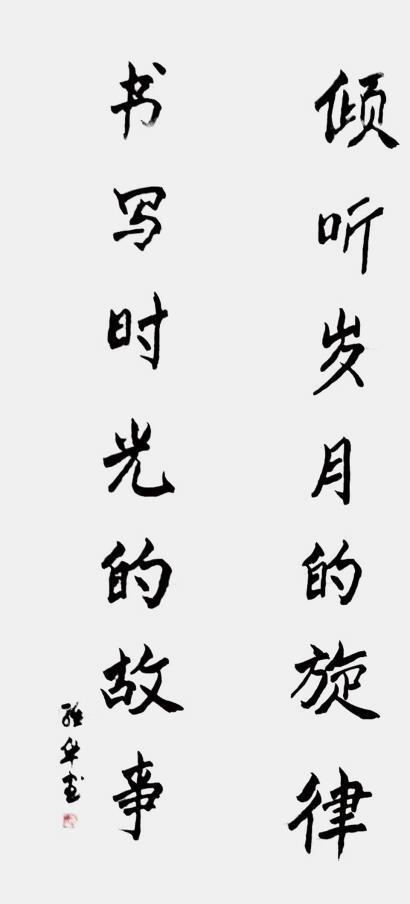 倾听岁月的旋律
书写时光的故事